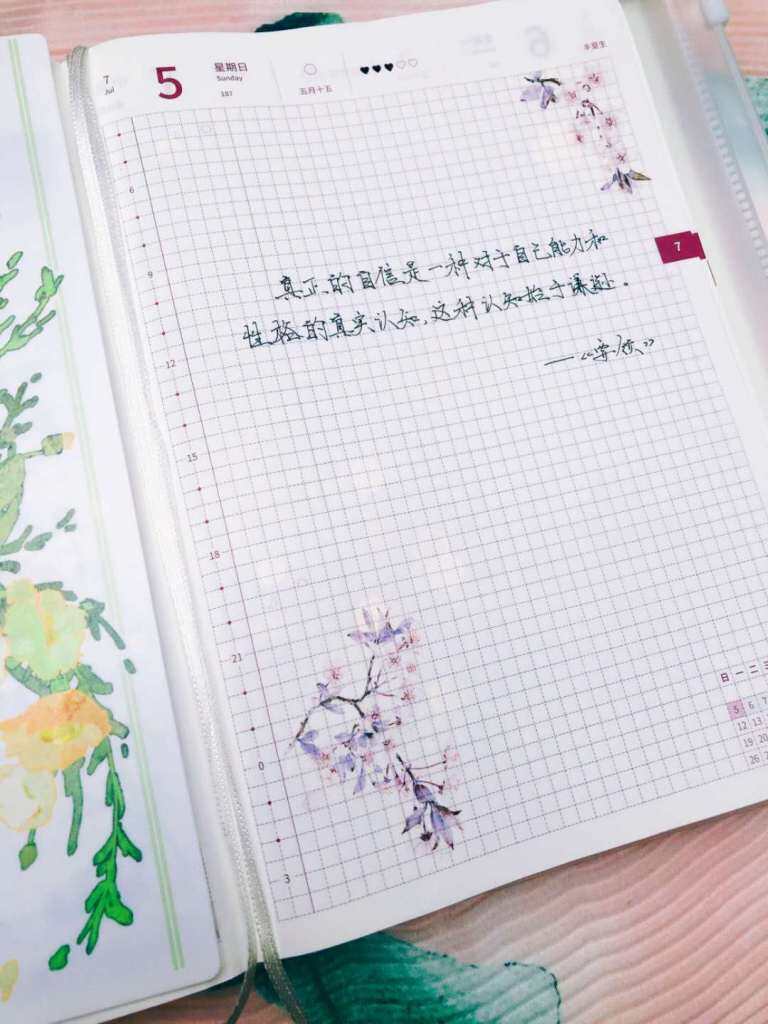 7
Jul
5
星期日
Sunday
187
五月十五
半夏生
6
9
12
15
18
21
0
3
7
真正的自信是一种对于自己能力和
性格的真实认知，这种认知始于谦逊。
——《要领》
日 一 二
5 6 7
12 13
19 20
26